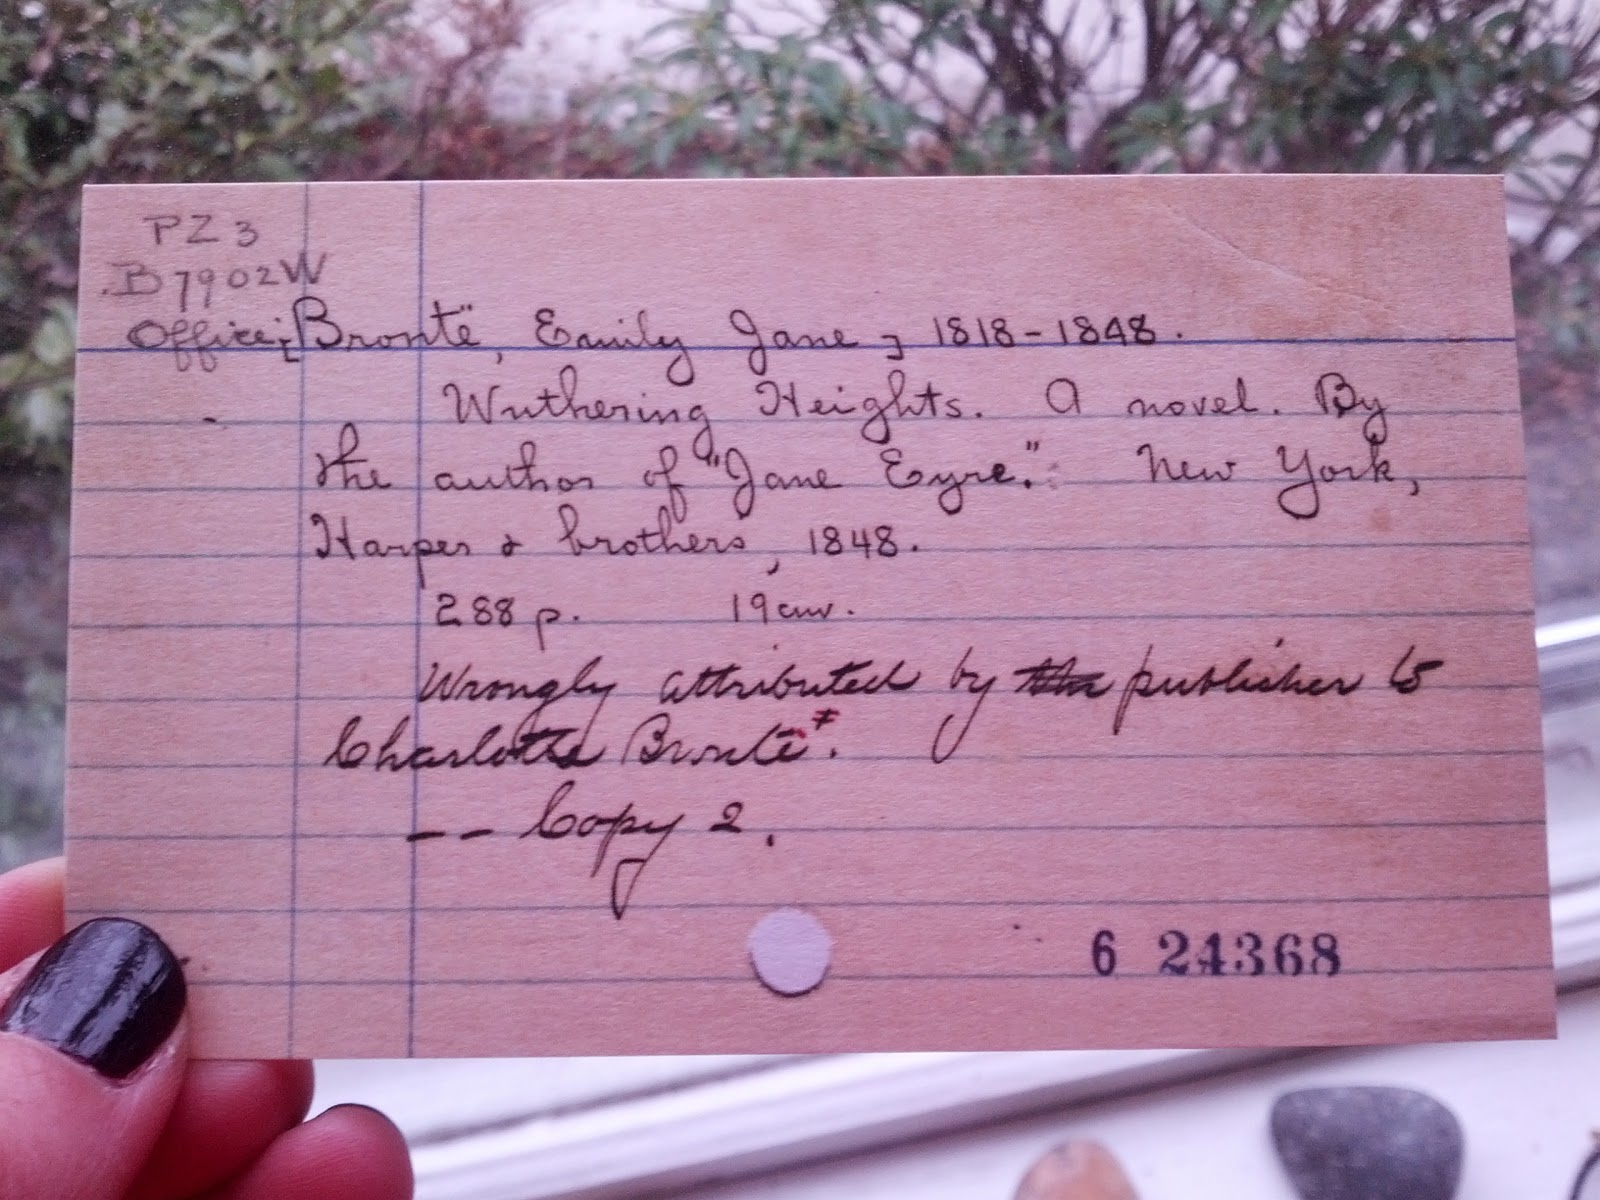 PZ3
.B7902W
Office; [Brontë, Emily Jane] 1818-1848.
Wuthering Heights. A novel. By
the author of "Jane Eyre." New York,
Harper & brothers, 1848.
288 p. 19 cm.
Wrongly attributed by the publisher to
Charlotte Brontë.
-- Copy 2.
6 24368